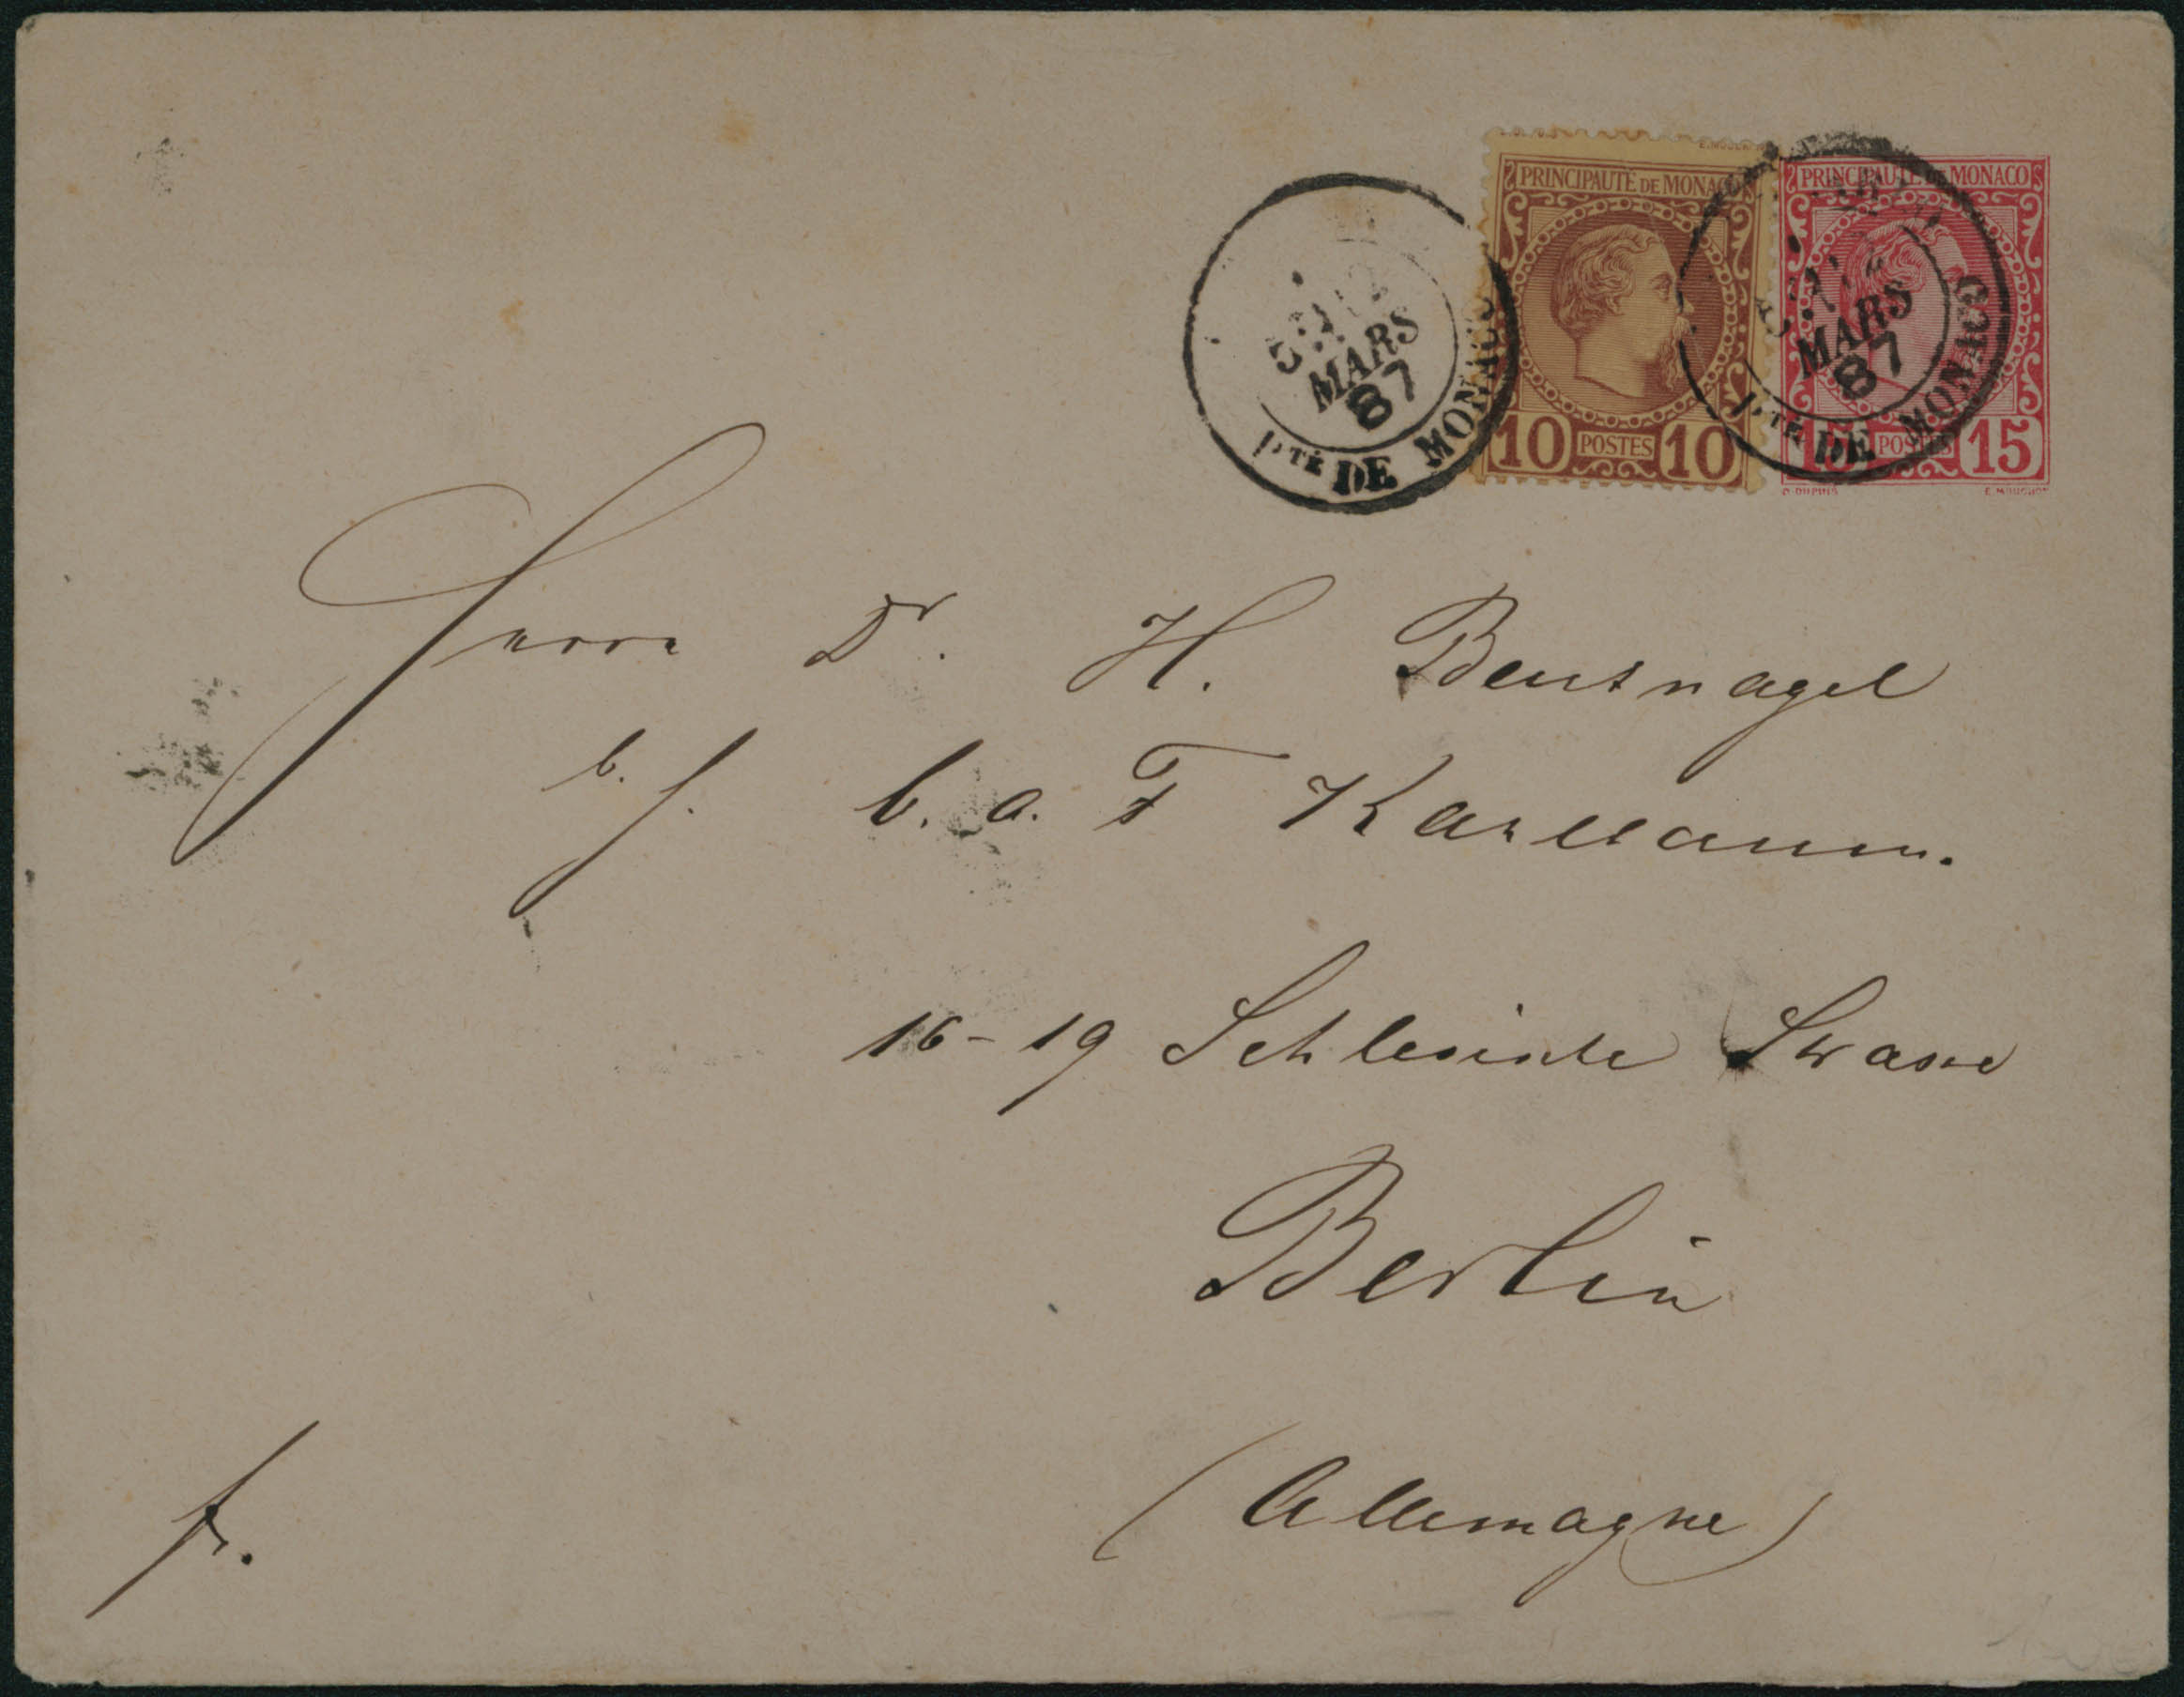 PRINCIPAUTÉ DE MONACO
10 POSTES 10
PRINCIPAUTÉ DE MONACO
15 POSTES 15
E. MOUCHON
MARS
87
PTÉ DE MONACO
MARS
87
PTÉ DE MONACO
Herrn Dr. H.
16-19 Strasse
Berlin
(Allemagne)
fr.